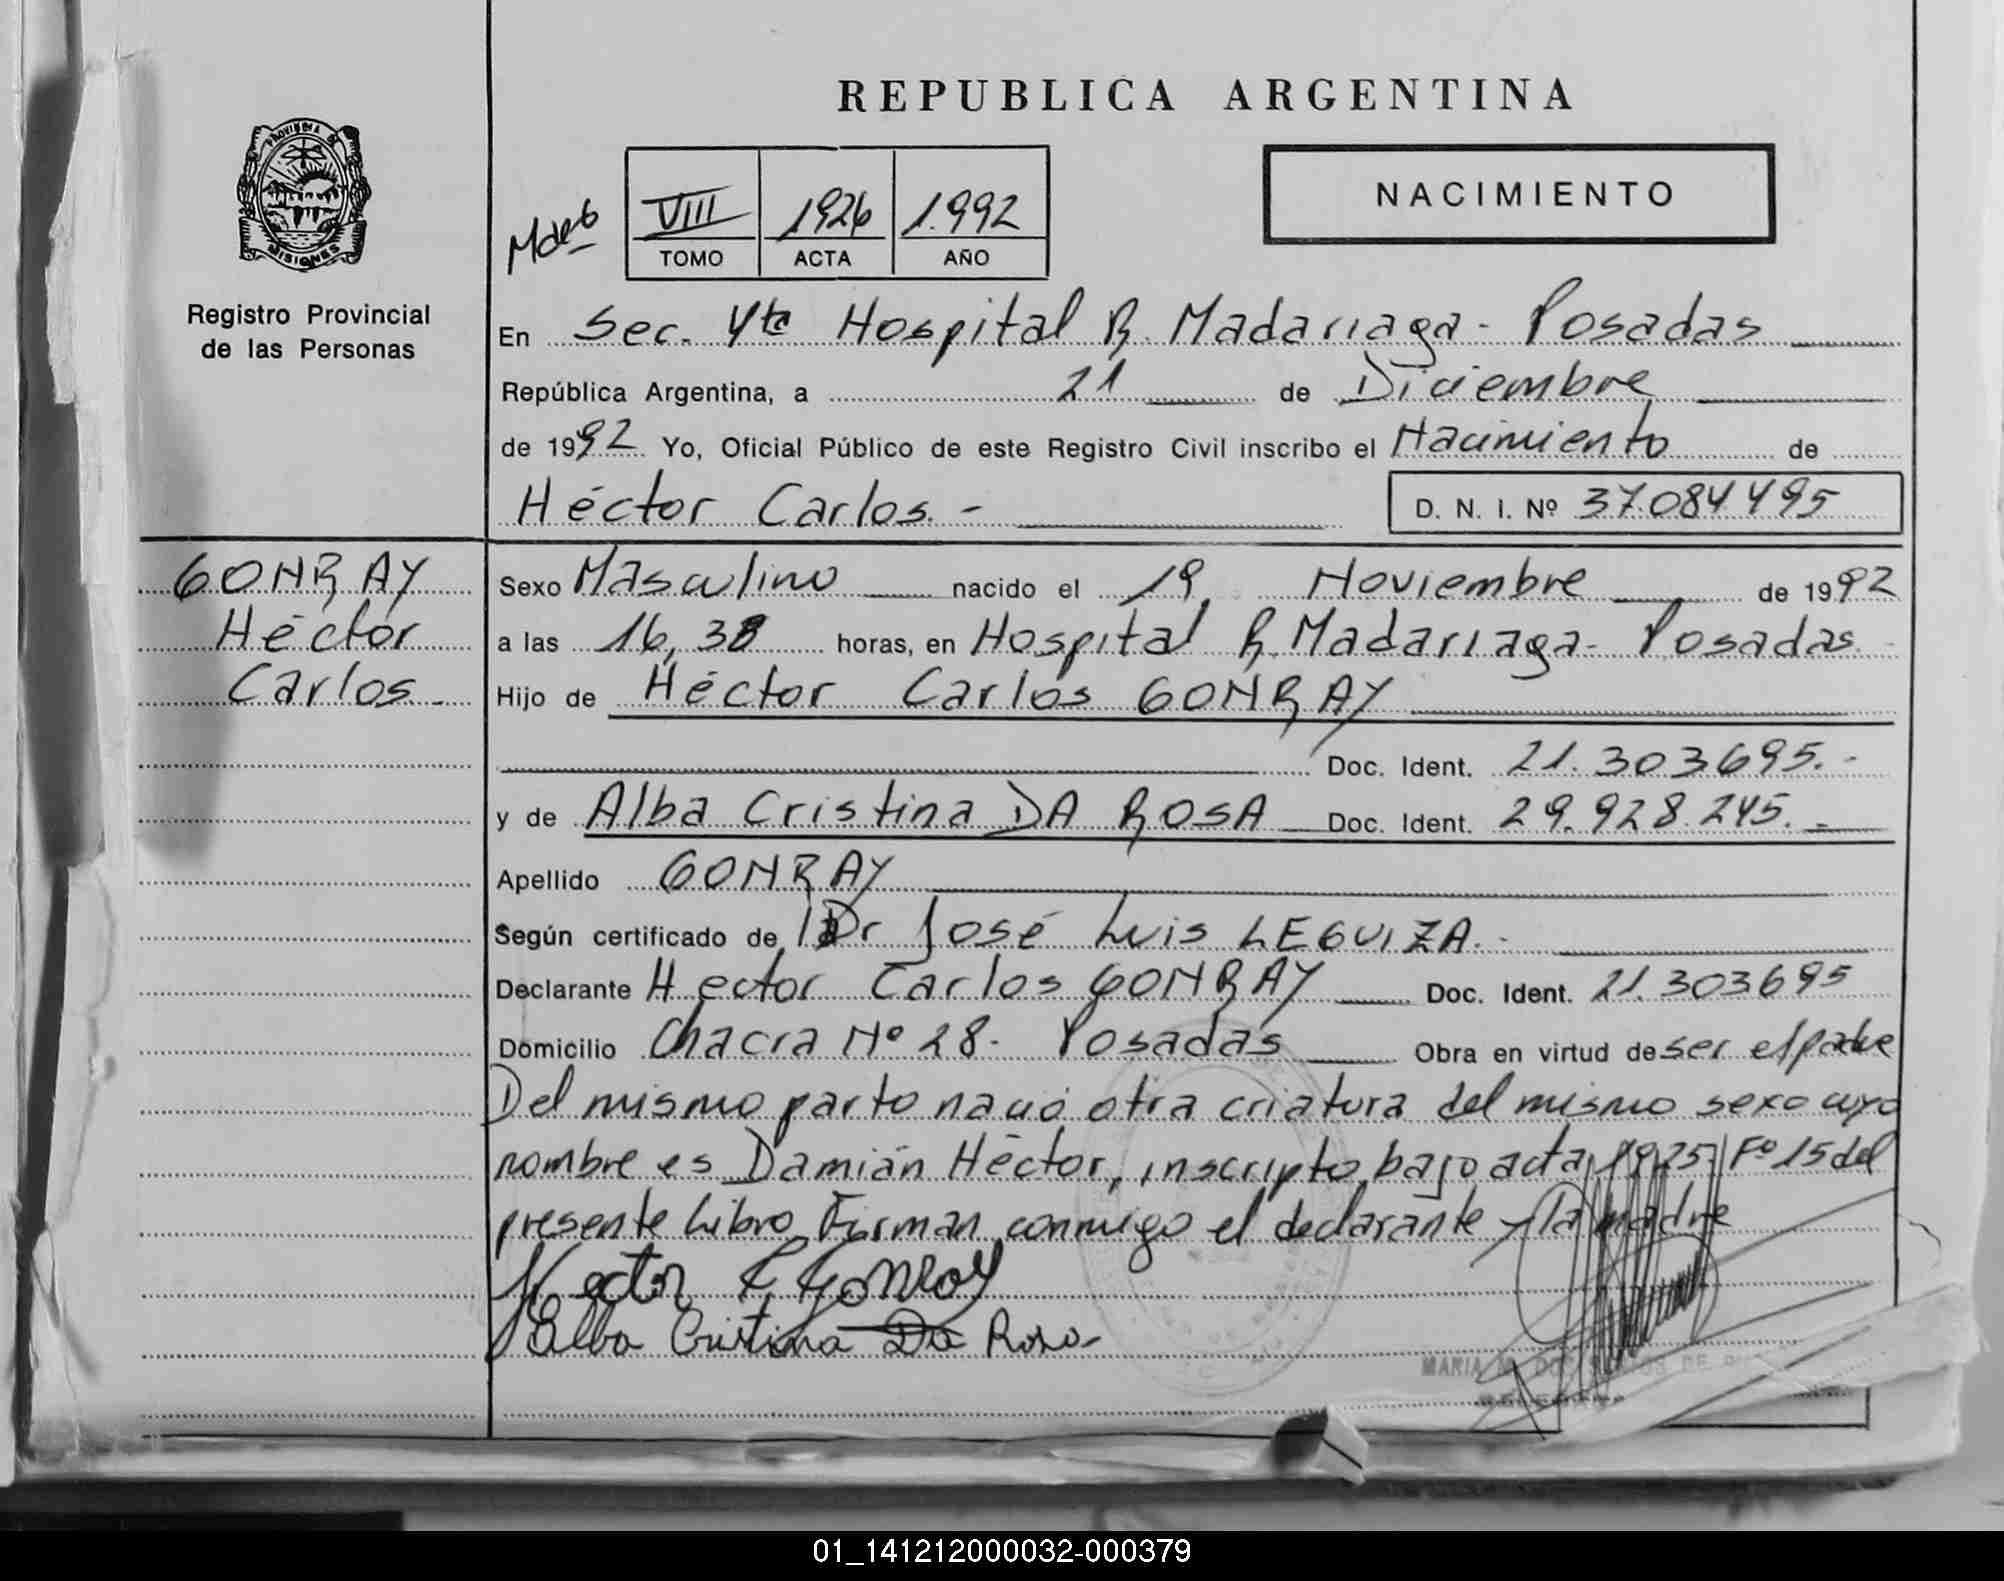 REPUBLICA ARGENTINA
PROVINCIA DE
MISIONES
Registro Provincial
de las Personas
VIII 1926 1.992
TOMO ACTA AÑO
NACIMIENTO
En Sec. 4ta Hospital R. Madariaga - Posadas
República Argentina, a 21 de Diciembre
de 1992 Yo, Oficial Público de este Registro Civil inscribo el Nacimiento de
Héctor Carlos. - D. N. I. Nº 37.084495
GONRAY
Héctor
Carlos. -
Sexo Masculino nacido el 19 Noviembre de 1992
a las 16,38 horas, en Hospital R. Madariaga - Posadas. -
Hijo de Héctor Carlos GONRAY
Doc. Ident. 21.303695. -
y de Alba Cristina DA ROSA Doc. Ident. 29.928.245. -
Apellido GONRAY
Según certificado de Dr José Luis LEGUIZA. -
Declarante Hector Carlos GONRAY Doc. Ident. 21.303695
Domicilio Chacra Nº 28 - Posadas Obra en virtud de ser el padre
Del mismo parto nació otra criatura del mismo sexo cuyo
nombre es Damián Héctor, inscripto bajo acta 1925 Fº 15 del
presente Libro. Firman conmigo el declarante y la madre
Hector C Gonray
Alba Cristina Da Rosa
MARIA
01_141212000032-000379